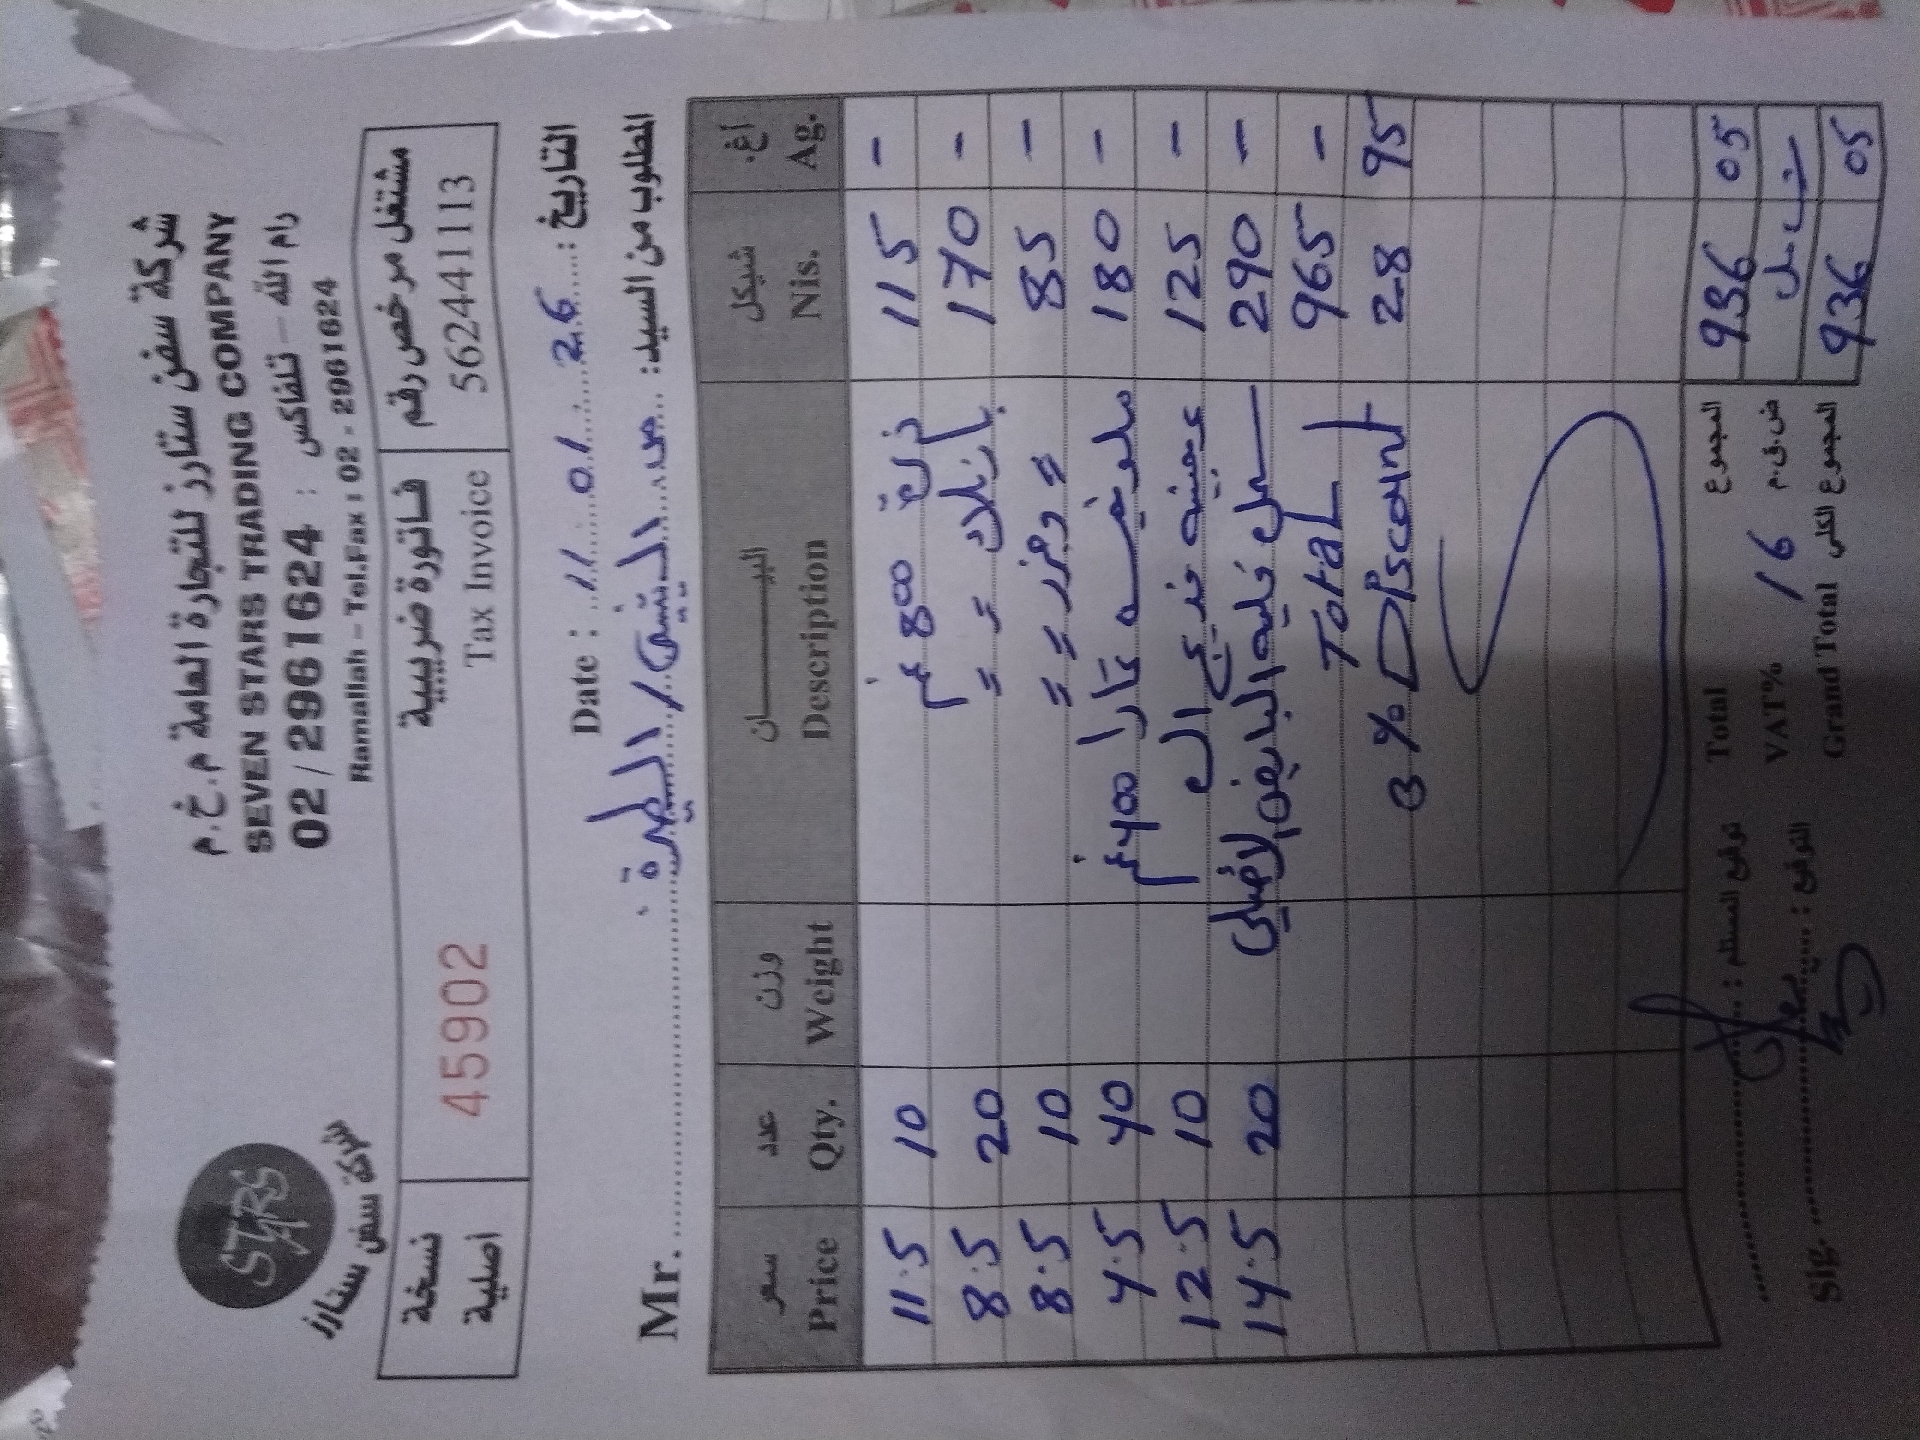 شركة سفن ستارز للتجارة العامة م.خ.م
SEVEN STARS TRADING COMPANY
رام الله - تلفاكس : 02 / 2961624
Ramallah - Tel.Fax : 02 - 2961624
STARS
شركة سفن ستارز
نسخة اصلية
45902
فاتورة ضريبية
Tax Invoice
مشتغل مرخص رقم
562441113
Date : 11 01 26 التاريخ :
Mr. المطلوب من السيد:
سعر عدد وزن البيـــــان شيكل أغ.
Price Qty. Weight Description Nis. Ag.
11.5 10 ذرة 800 غم 115 -
8.5 20 بازيلاء = = 170 -
8.5 10 = = 85 -
4.5 40 ملوخيه 400 غم 180 -
12.5 10 125 -
14.5 20 290 -
Total 965 -
3 % Discount 28 95
Total المجموع 936 05
VAT% 16 ض.ق.م
Grand Total المجموع الكلي 936 05
توقيع المستلم :
Sig. التوقيع :